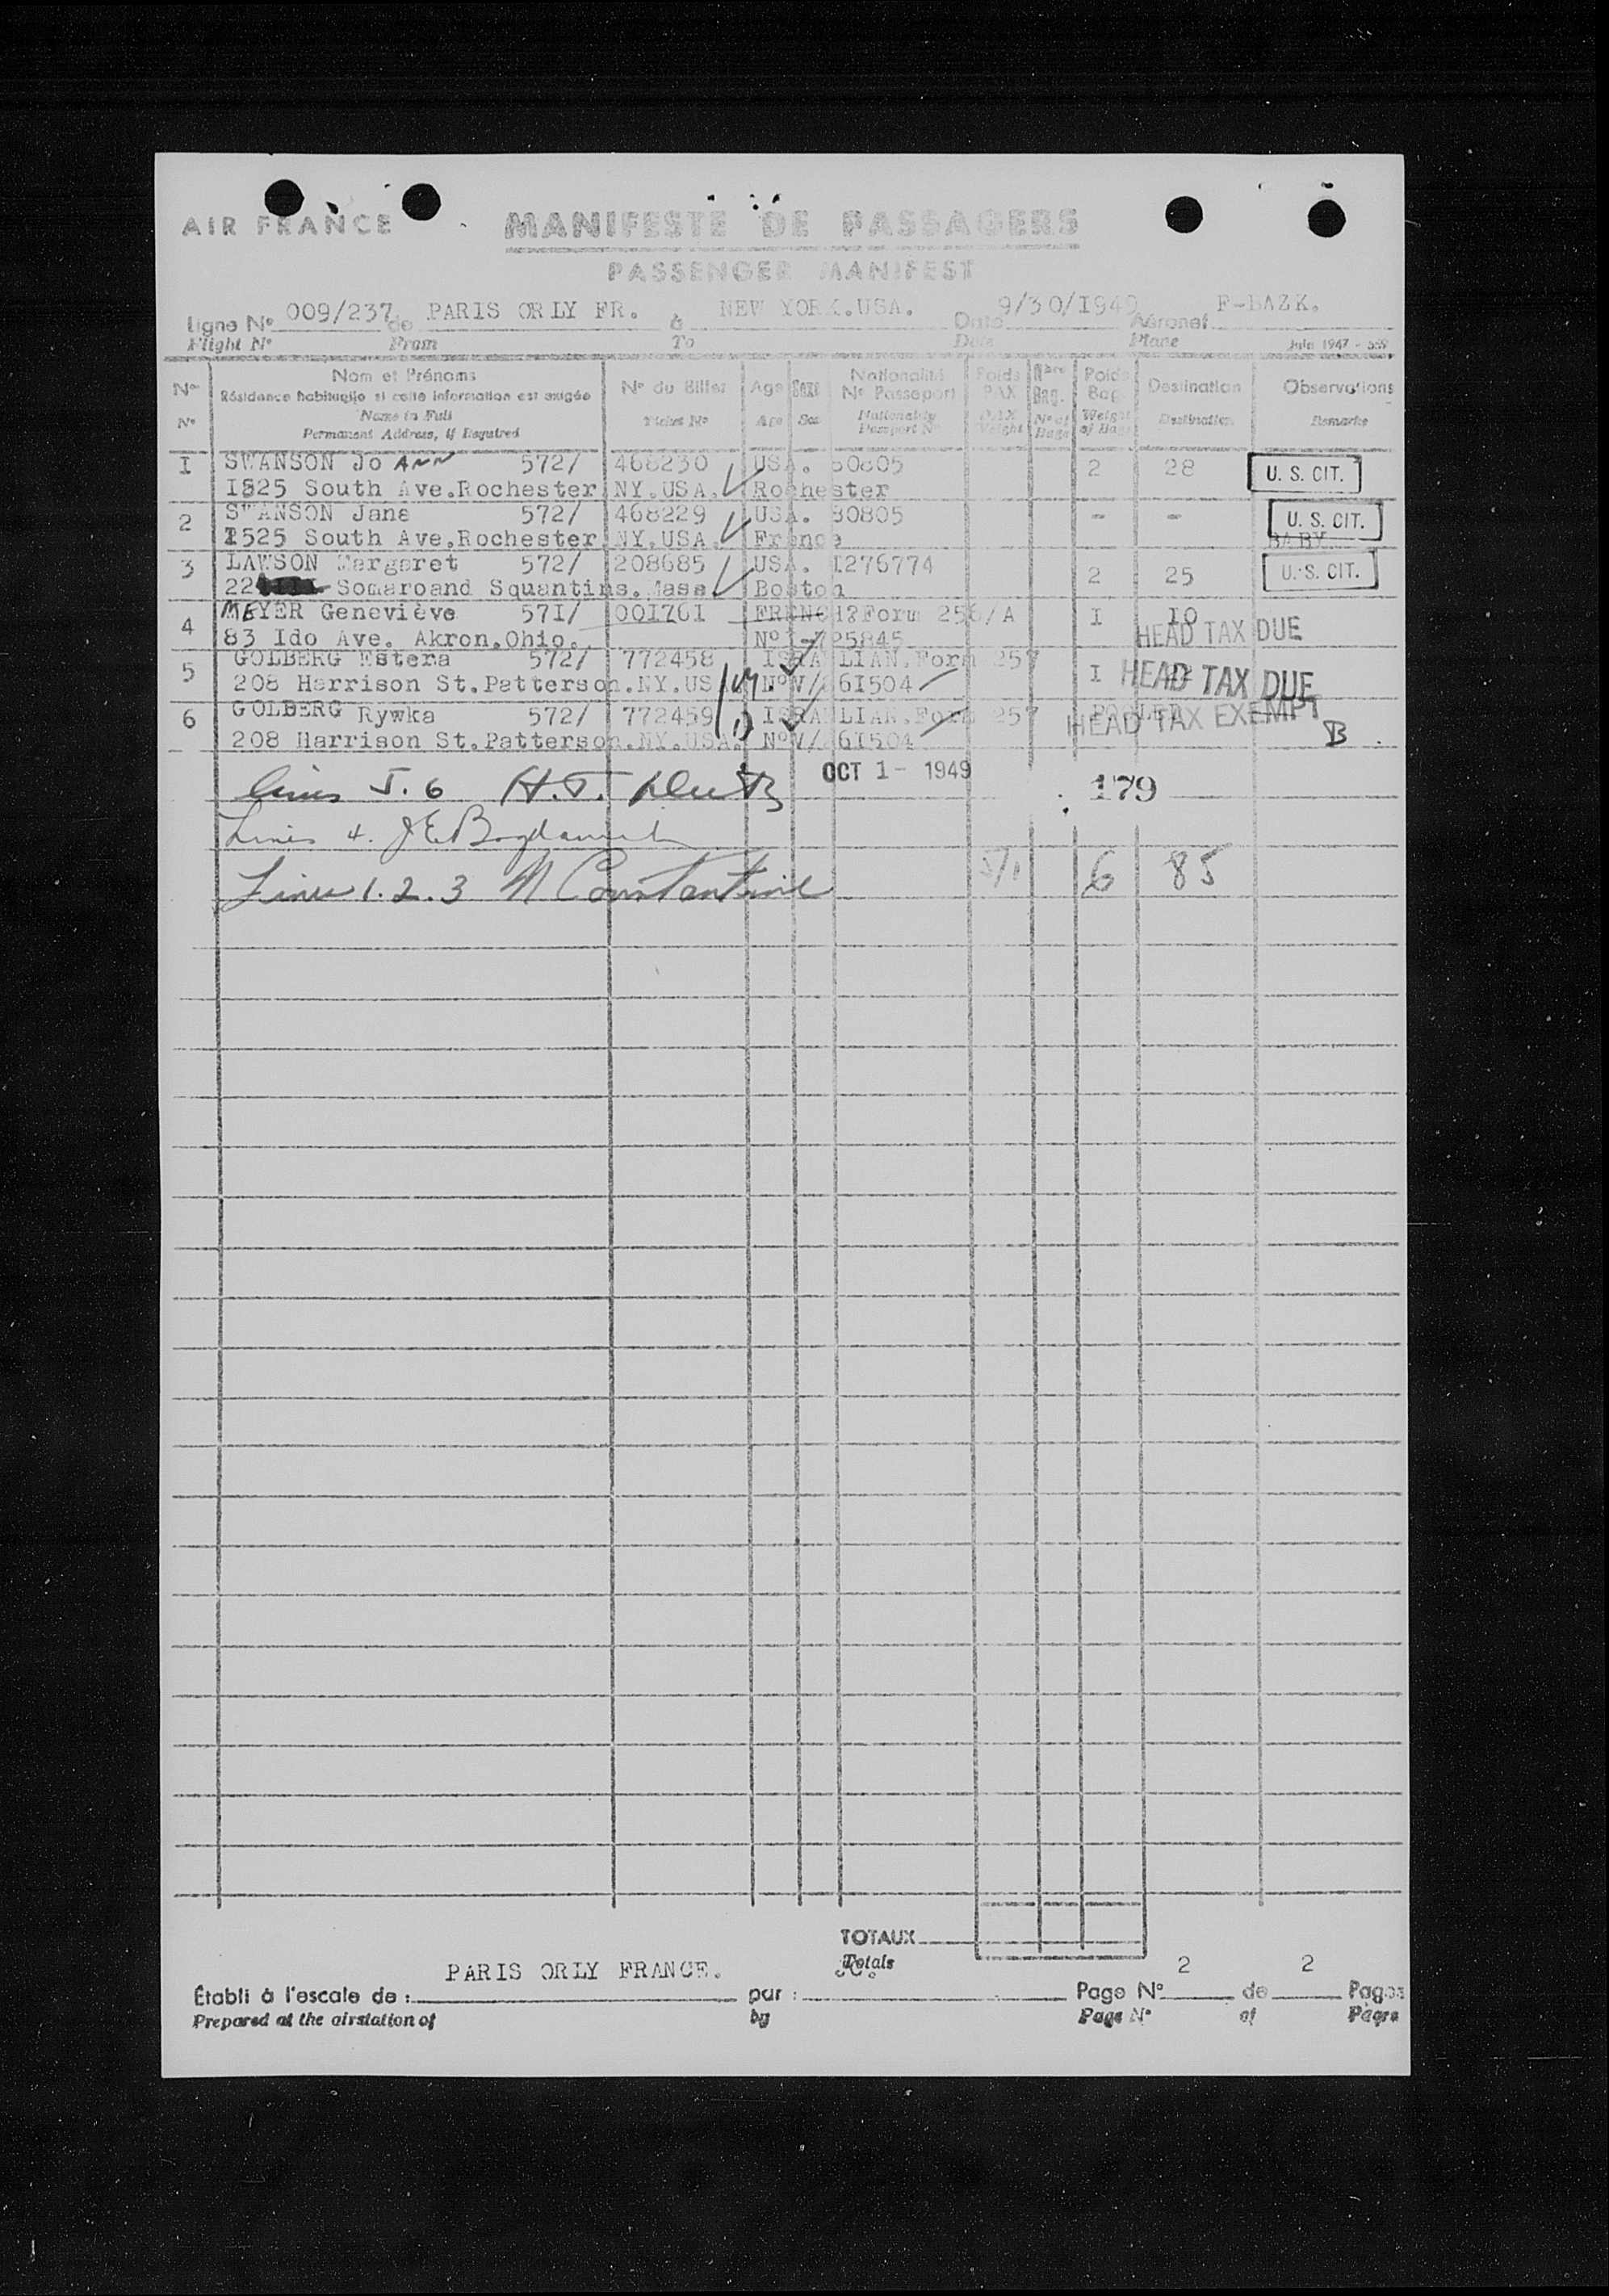 AIR FRANCE
MANIFESTE DE PASSAGERS
PASSENGER MANIFEST
Ligne No 009/237 de PARIS ORLY FR. à NEW YORK.USA. Date 9/30/1949 Aéronef F-BAZK.
Flight No From To Date Plane Juin 1947 -
No Nom et Prénoms No du Billet Age Sexe Nationalité Poids Nbre Poids Destination Observations
Résidence habituelle si cette information est exigée No Passeport PAX Bag. Bag.
No Name in Full Ticket No Age Sex Nationality PAX No of Weight Destination Remarks
Permanent Address, if Required Passport No Weight Bags of Bags
I SWANSON Jo ANN 572/ 468230 USA. 80805 2 28 U. S. CIT.
1525 South Ave.Rochester.NY.USA. Rochester
2 SWANSON Jane 572/ 468229 USA. 80805 - - U. S. CIT.
1525 South Ave.Rochester.NY.USA. France BABY
3 LAWSON Margaret 572/ 208685 USA. I276774 2 25 U. S. CIT.
22 Somaroand Squantins.Mass Boston
4 MEYER Geneviève 57I/ 00I76I FRENCH Form 256/A I IO HEAD TAX DUE
83 Ido Ave. Akron.Ohio. No I-725845
5 GOLBERG Estera 572/ 772458 ISRAELIAN.Form 257 I HEAD TAX DUE
208 Harrison St.Patterson.NY.USA. No V/ 6I504
6 GOLBERG Rywka 572/ 772459 ISRAELIAN.Form 257 POOLED HEAD TAX EXEMPT
208 Harrison St.Patterson.NY.USA. No V/ 6I504 B
Lines 5.6 H.J. OCT 1- 1949 179
Lines 4. J E
Lines 1.2.3 N Constantine 5/1 6 85
TOTAUX
Totals
Établi à l'escale de : PARIS ORLY FRANCE. par : Page No 2 de 2 Pages
Prepared at the airstation of by Page No of Pages